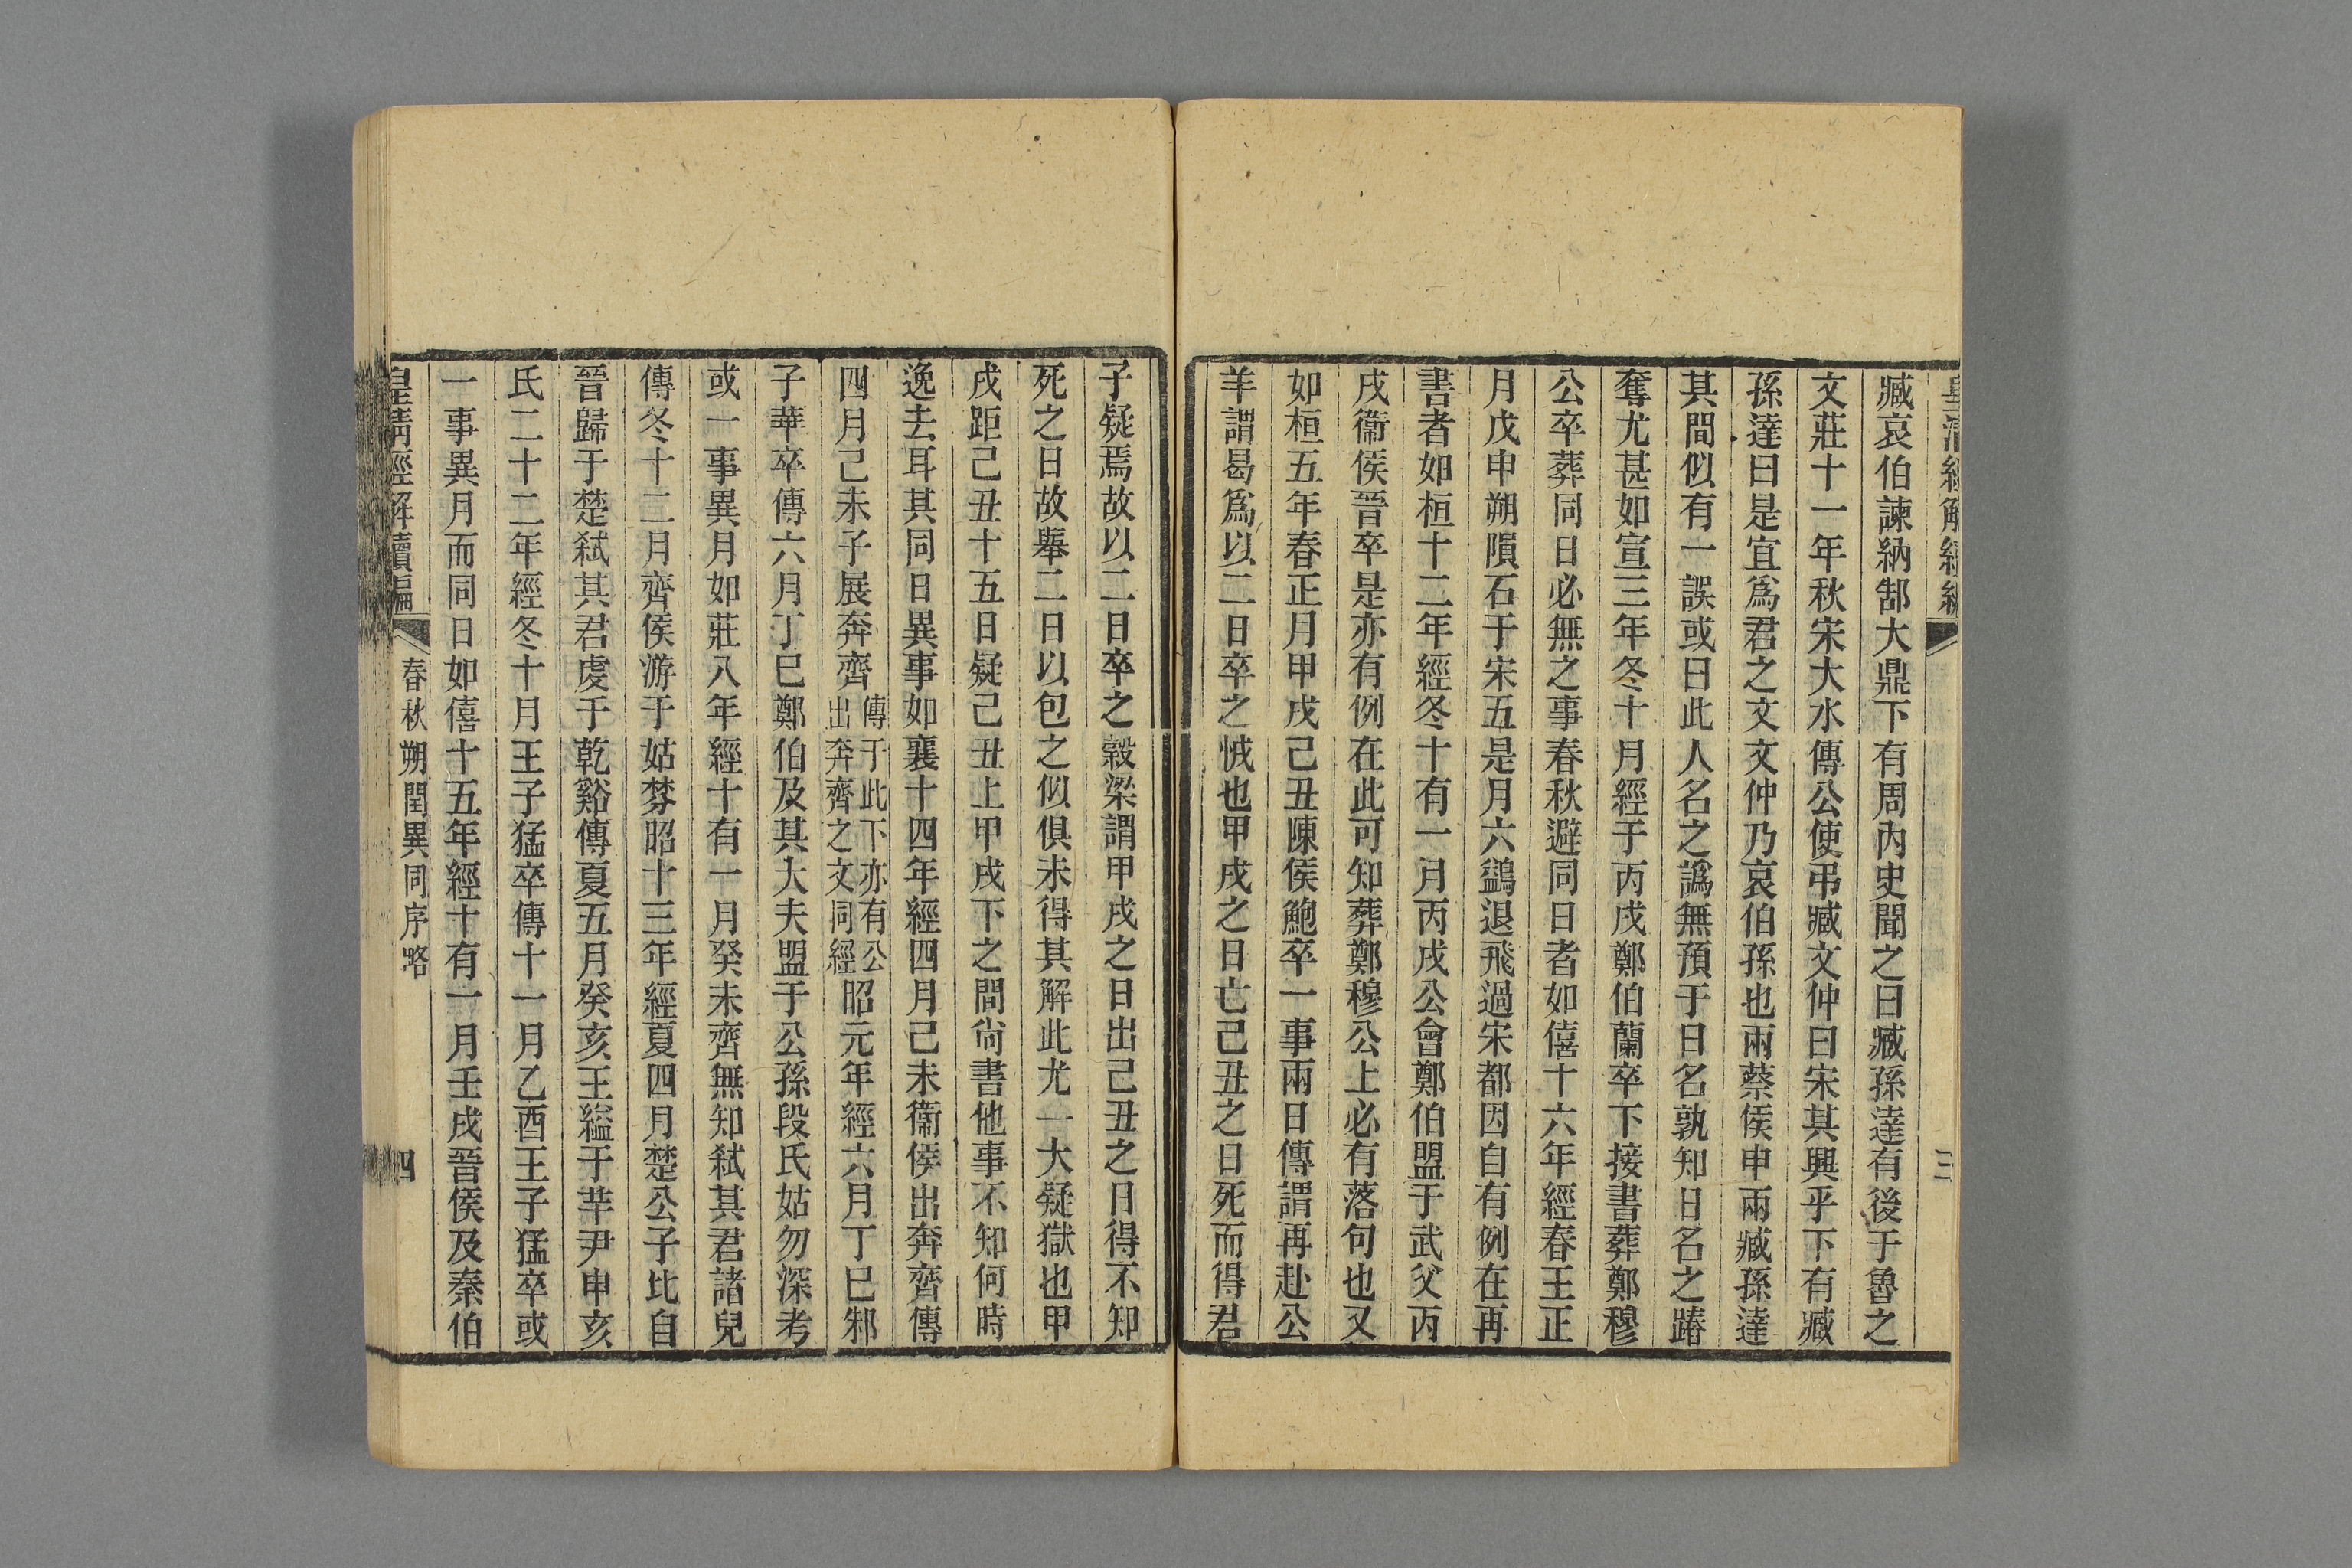 皇清經解續編 三
臧哀伯諫納郜大鼎下有周內史聞之曰臧孫達有後于魯之
文莊十一年秋宋大水傳公使弔臧文仲曰宋其興乎下有臧
孫達曰是宜爲君之文文仲乃哀伯孫也兩蔡侯申兩臧孫達
其間似有一誤或曰此人名之譌無預于日名孰知日名之踳
奪尤甚如宣三年冬十月經于丙戌鄭伯蘭卒下接書葬鄭穆
公卒葬同日必無之事春秋避同日者如僖十六年經春王正
月戊申朔隕石于宋五是月六鷁退飛過宋都因自有例在再
書者如桓十二年經冬十有一月丙戌公會鄭伯盟于武父丙
戌衞侯晉卒是亦有例在此可知葬鄭穆公上必有落句也又
如桓五年春正月甲戌己丑陳侯鮑卒一事兩日傳謂再赴公
羊謂曷爲以二日卒之怴也甲戌之日亡己丑之日死而得君
子疑焉故以二日卒之穀梁謂甲戌之日出己丑之日得不知
死之日故舉二日以包之似俱未得其解此尤一大疑獄也甲
戌距己丑十五日疑己丑上甲戌下之間尙書他事不知何時
逸去耳其同日異事如襄十四年經四月己未衞侯出奔齊傳
四月己未子展奔齊傳于此下亦有公出奔齊之文同經昭元年經六月丁巳邾
子華卒傳六月丁巳鄭伯及其大夫盟于公孫段氏姑勿深考
或一事異月如莊八年經十有一月癸未齊無知弑其君諸兒
傳冬十二月齊侯游于姑棼昭十三年經夏四月楚公子比自
晉歸于楚弑其君虔于乾谿傳夏五月癸亥王縊于芉尹申亥
氏二十二年經冬十月王子猛卒傳十一月乙酉王子猛卒或
一事異月而同日如僖十五年經十有一月壬戌晉侯及秦伯
皇淸經解續編 春秋朔閏異同序略 四